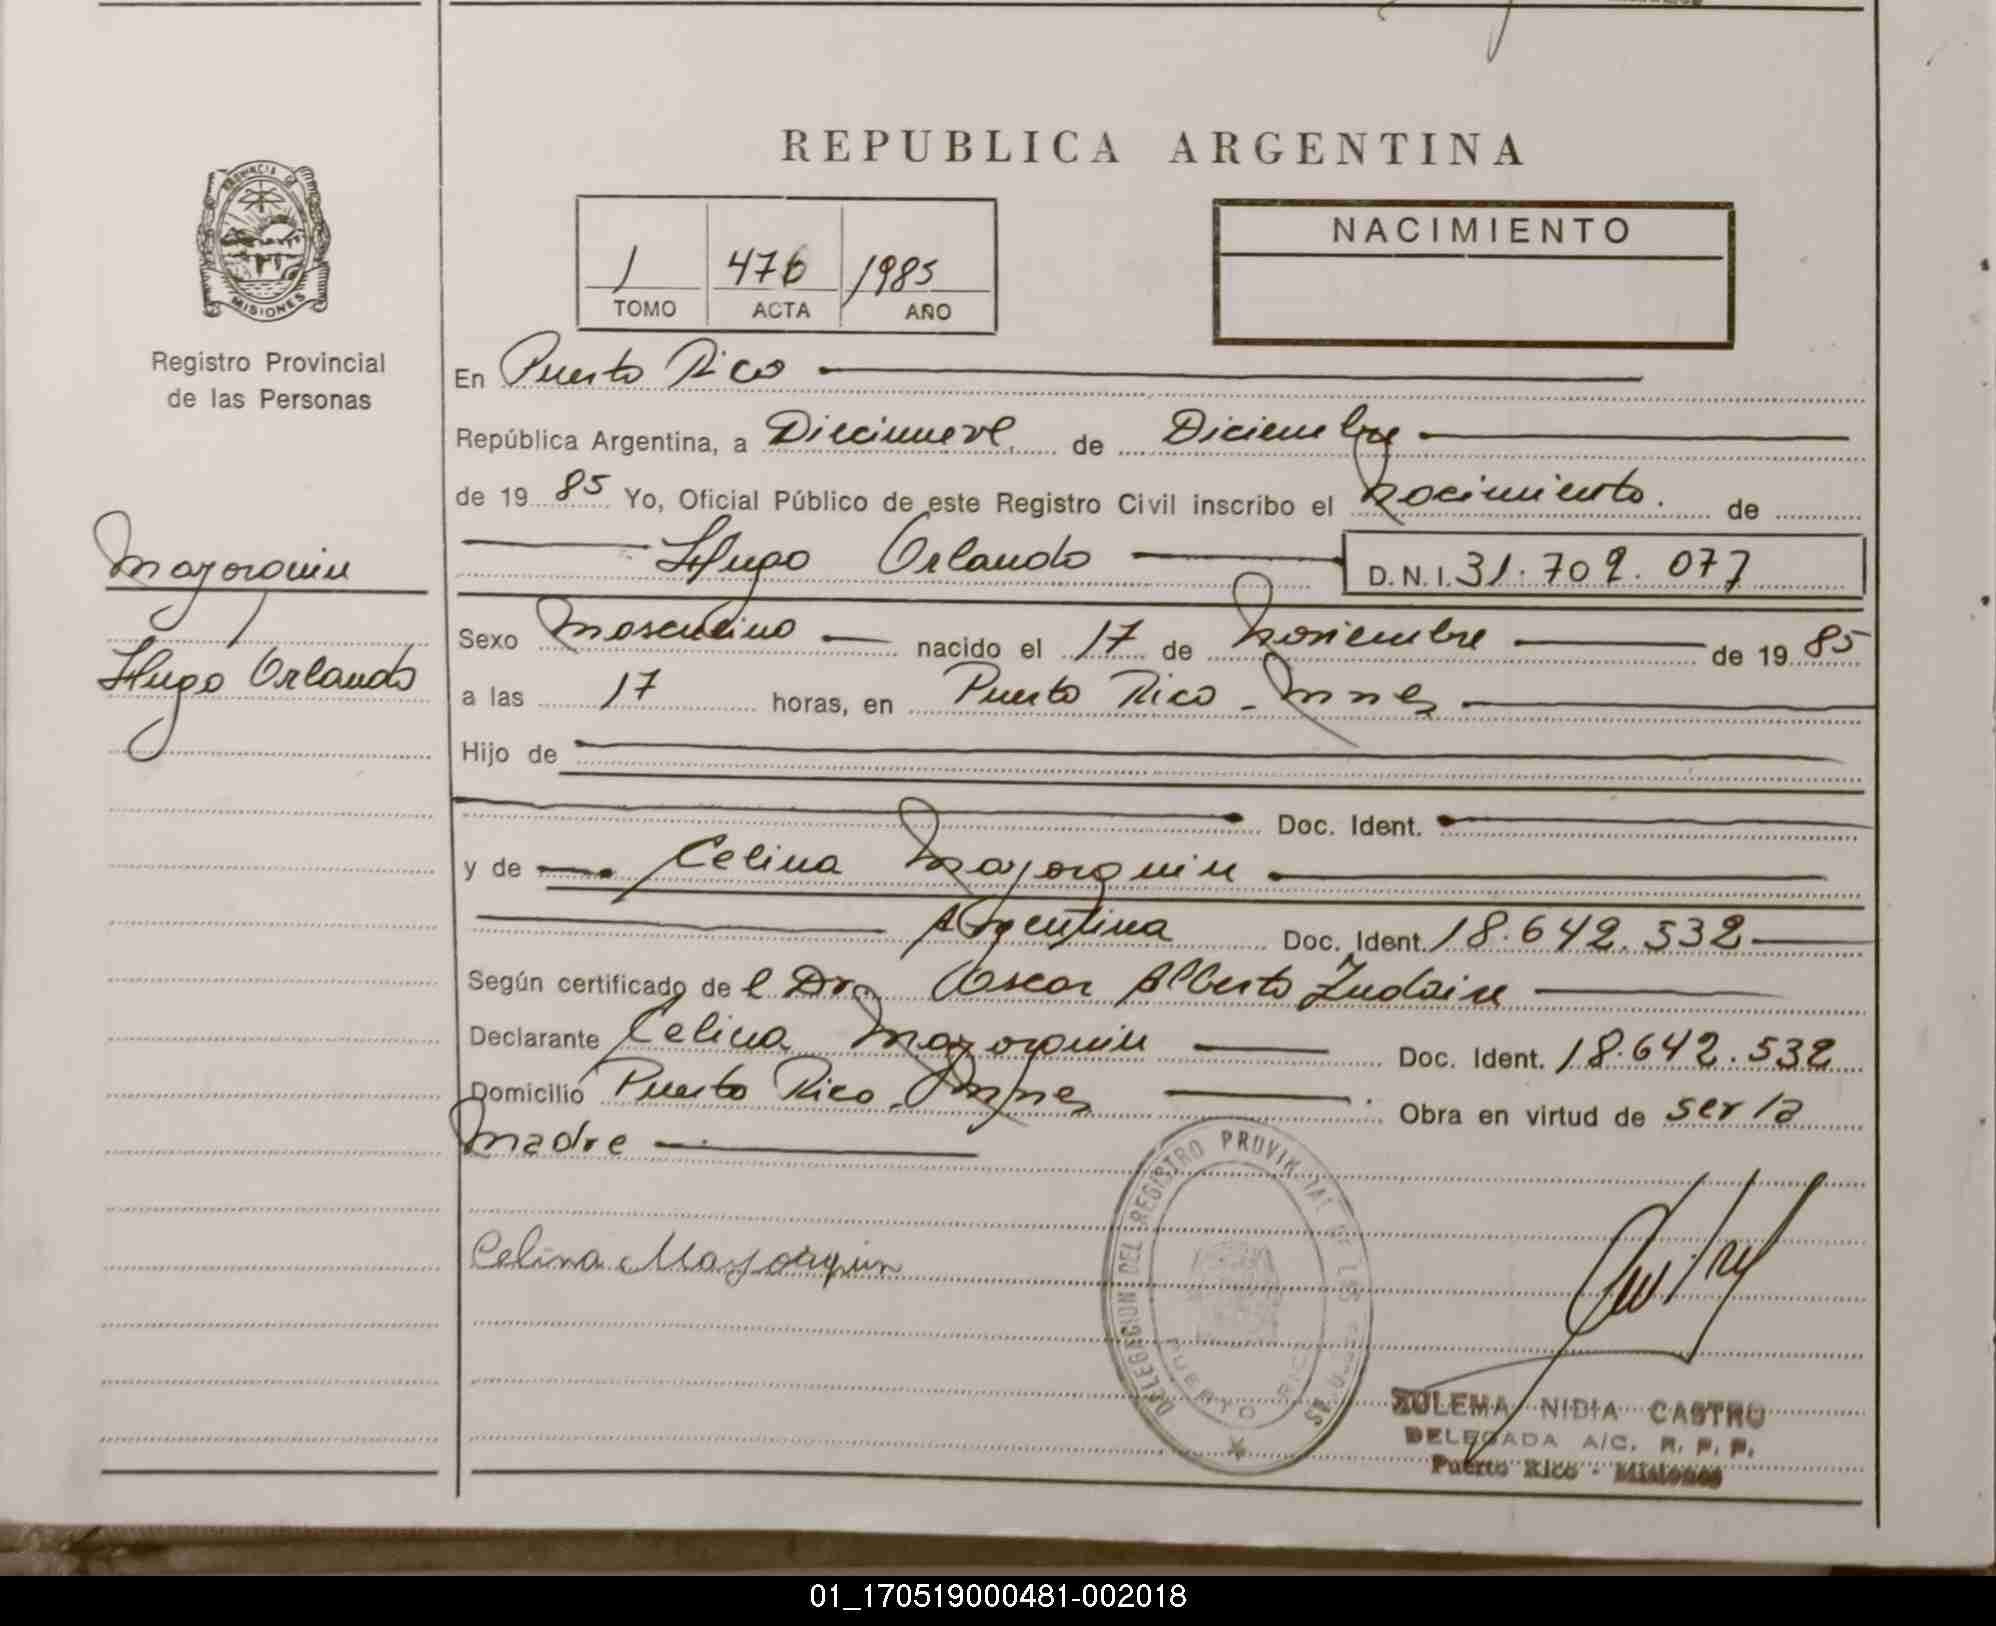 REPUBLICA ARGENTINA
PROVINCIA DE
MISIONES
Registro Provincial
de las Personas
1 476 1985
TOMO ACTA AÑO
NACIMIENTO
En Puerto Rico
República Argentina, a Diecinueve de Diciembre
de 19 85 Yo, Oficial Público de este Registro Civil inscribo el nacimiento. de
Hugo Orlando D.N.I. 31.702.077
Mayorquin
Hugo Orlando
Sexo masculino nacido el 17 de noviembre de 19 85
a las 17 horas, en Puerto Rico - Mnes
Hijo de
Doc. Ident.
y de Celina Mayorquin
Argentina Doc. Ident. 18.642.532
Según certificado de l Dr. Oscar Alberto
Declarante Celina Mayorquin Doc. Ident. 18.642.532
Domicilio Puerto Rico - Mnes Obra en virtud de ser la
madre
Celina Mayorquin
DELEGACION DEL REGISTRO PROVINCIAL DE LAS PERSONAS
PUERTO RICO
ZULEMA NIDIA CASTRO
DELEGADA A/C. R. P. P.
Puerto Rico - Misiones
01_170519000481-002018